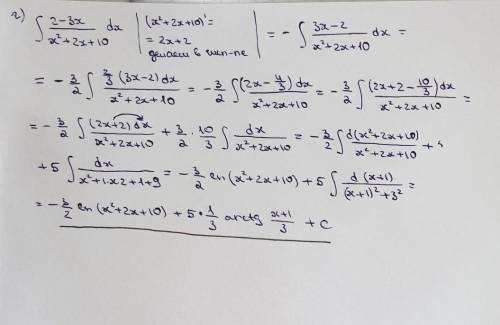 г) ∫ (2-3x)/(x²+2x+10) dx | (x²+2x+10)' = = 2x+2 делаем в числ-ле | = - ∫ (3x-2)/(x²+2x+10) dx =
= - 3/2 ∫ (2/3 (3x-2) dx)/(x²+2x+10) = - 3/2 ∫ ((2x - 4/3) dx)/(x²+2x+10) = - 3/2 ∫ ((2x+2 - 10/3) dx)/(x²+2x+10) =
= - 3/2 ∫ ((2x+2) dx)/(x²+2x+10) + 3/2 · 10/3 ∫ dx/(x²+2x+10) = - 3/2 ∫ d(x²+2x+10)/(x²+2x+10) +
+ 5 ∫ dx/(x²+1·x·2+1+9) = - 3/2 ln(x²+2x+10) + 5 ∫ d(x+1)/((x+1)²+3²) =
= - 3/2 ln(x²+2x+10) + 5 · 1/3 arctg (x+1)/3 + C